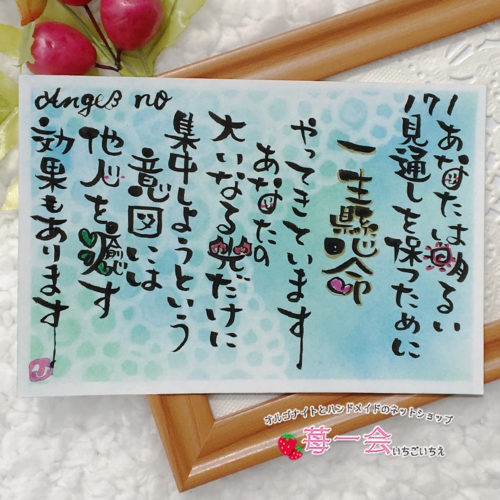 Angel no
171
あなたは明るい
見通しを保つために
一生懸命
やってきています
あなたの
大いなる光だけに
集中しようという
意図には
他人を癒す
効果もあります
オルゴナイトとハンドメイドのネットショップ
苺一会 いちごいちえ